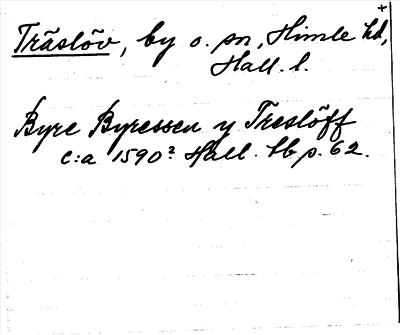 +
Träslöv, by o. sn, Himle hd,
Hall. l.
Byre Byressen y Treslöff
c:a 1590? Hall. tb p. 62.